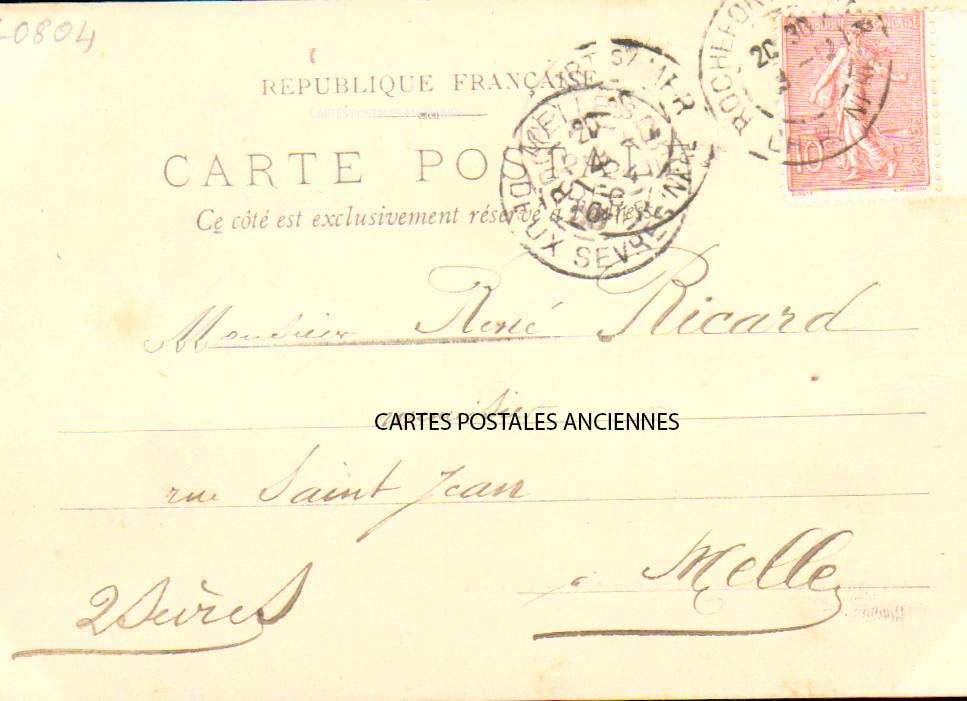 -0804
RÉPUBLIQUE FRANÇAISE
CARTES POSTALES ANCIENNES
CARTE POSTALE
Ce côté est exclusivement réservé à l'adresse
RÉPUBLIQUE FRANÇAISE
10
ROCHEFORT
MELLE
DEUX SEVRES
Monsieur René Ricard
CARTES POSTALES ANCIENNES
rue Saint Jean
à Melle
2 Sèvres